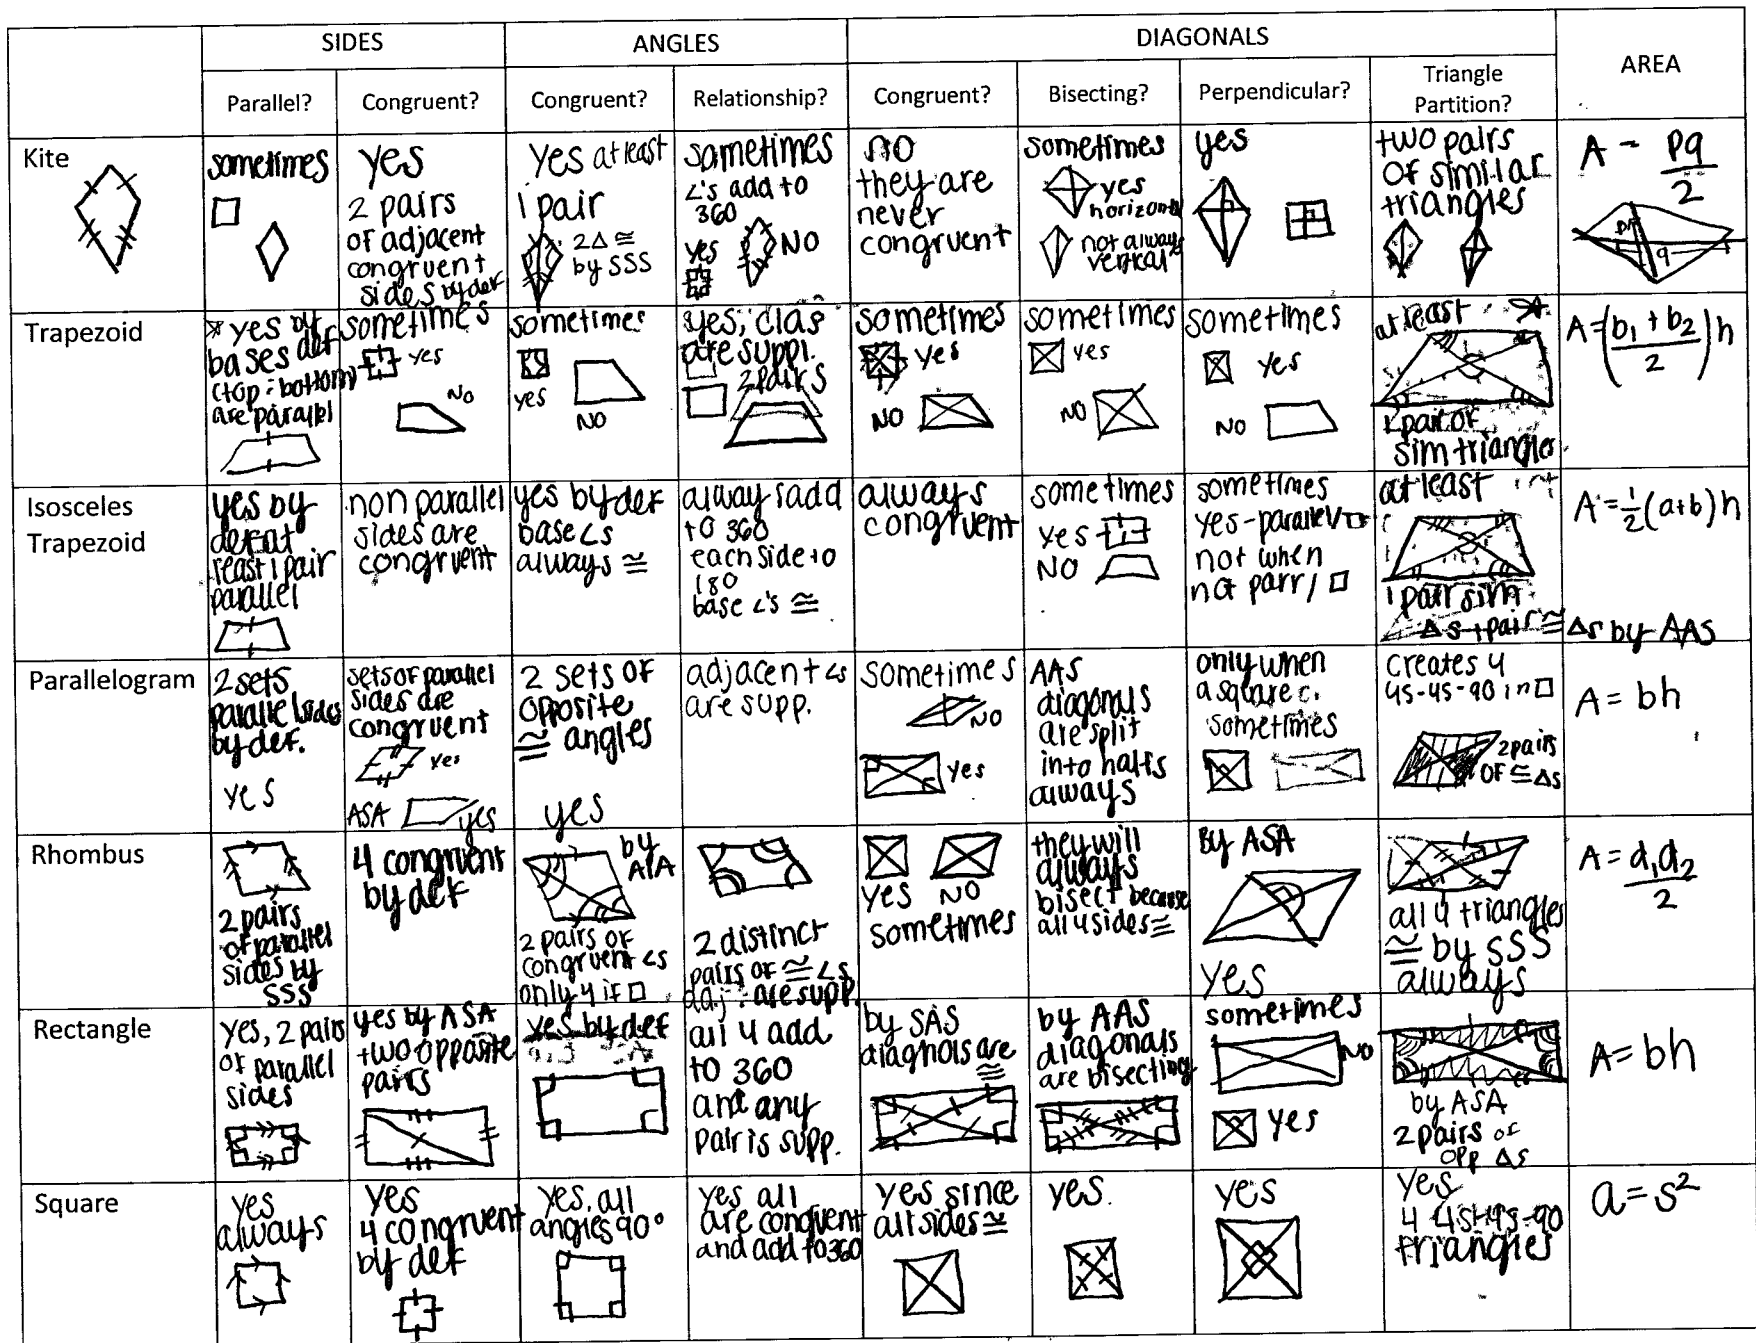 SIDES
ANGLES
DIAGONALS
AREA
Parallel?
Congruent?
Congruent?
Relationship?
Congruent?
Bisecting?
Perpendicular?
Triangle
Partition?
Kite
sometimes
yes
2 pairs
of adjacent
congruent
sides by def
yes at least
1 pair
2△ ≅
by SSS
sometimes
∠'s add to
360
yes
NO
no
they are
never
congruent
sometimes
yes
horizontal
not always
vertical
yes
two pairs
of similar
triangles
A = pq/2
q
Trapezoid
* yes by
bases def
(top & bottom)
are parallel
sometimes
yes
NO
sometimes
yes
NO
yes,
are suppl.
2 pairs
sometimes
yes
NO
sometimes
yes
NO
sometimes
yes
NO
at least
1 pair of
sim triangles
A=(b₁ + b₂/2)h
Isosceles
Trapezoid
yes by
def at
least 1 pair
parallel
non parallel
sides are
congruent
yes by def
base ∠s
always ≅
always add
to 360
each side to
180
base ∠'s ≅
always
congruent
sometimes
yes
NO
sometimes
yes - parallel/□
not when
not parr/□
at least
1 pair sim
△s 1 pair ≅ △s by AAS
A=½(a+b)h
Parallelogram
2 sets
parallel sides
by def.
yes
sets of parallel
sides are
congruent
yes
ASA
yes
2 sets of
opposite
≅ angles
yes
adjacent ∠s
are supp.
sometimes
NO
yes
AAS
diagonals
are split
into halfs
always
only when
a square
sometimes
creates 4
45-45-90 in □
2 pairs
of ≅ △s
A = bh
Rhombus
2 pairs
of parallel
sides by
SSS
4 congruent
by def
by
2 pairs of
congruent ∠s
only 4 if □
2 distinct
pairs of ≅ ∠s
adj. are supp.
yes
NO
sometimes
they will
always
bisect because
all 4 sides ≅
By ASA
yes
all 4 triangles
≅ by SSS
always
A = d₁d₂/2
Rectangle
yes, 2 pairs
of parallel
sides
yes by ASA
two opposite
pairs
yes by def
all 4 add
to 360
and any
pair is supp.
by SAS
diagnols are
≅
by AAS
diagonals
are bisecting
sometimes
NO
yes
by ASA
2 pairs of
opp △s
A = bh
Square
yes
always
yes
4 congruent
by def
yes, all
angles 90°
yes all
are congruent
and add to 360
yes since
all sides ≅
yes.
yes
yes
4 45-45-90
triangles
a = s²